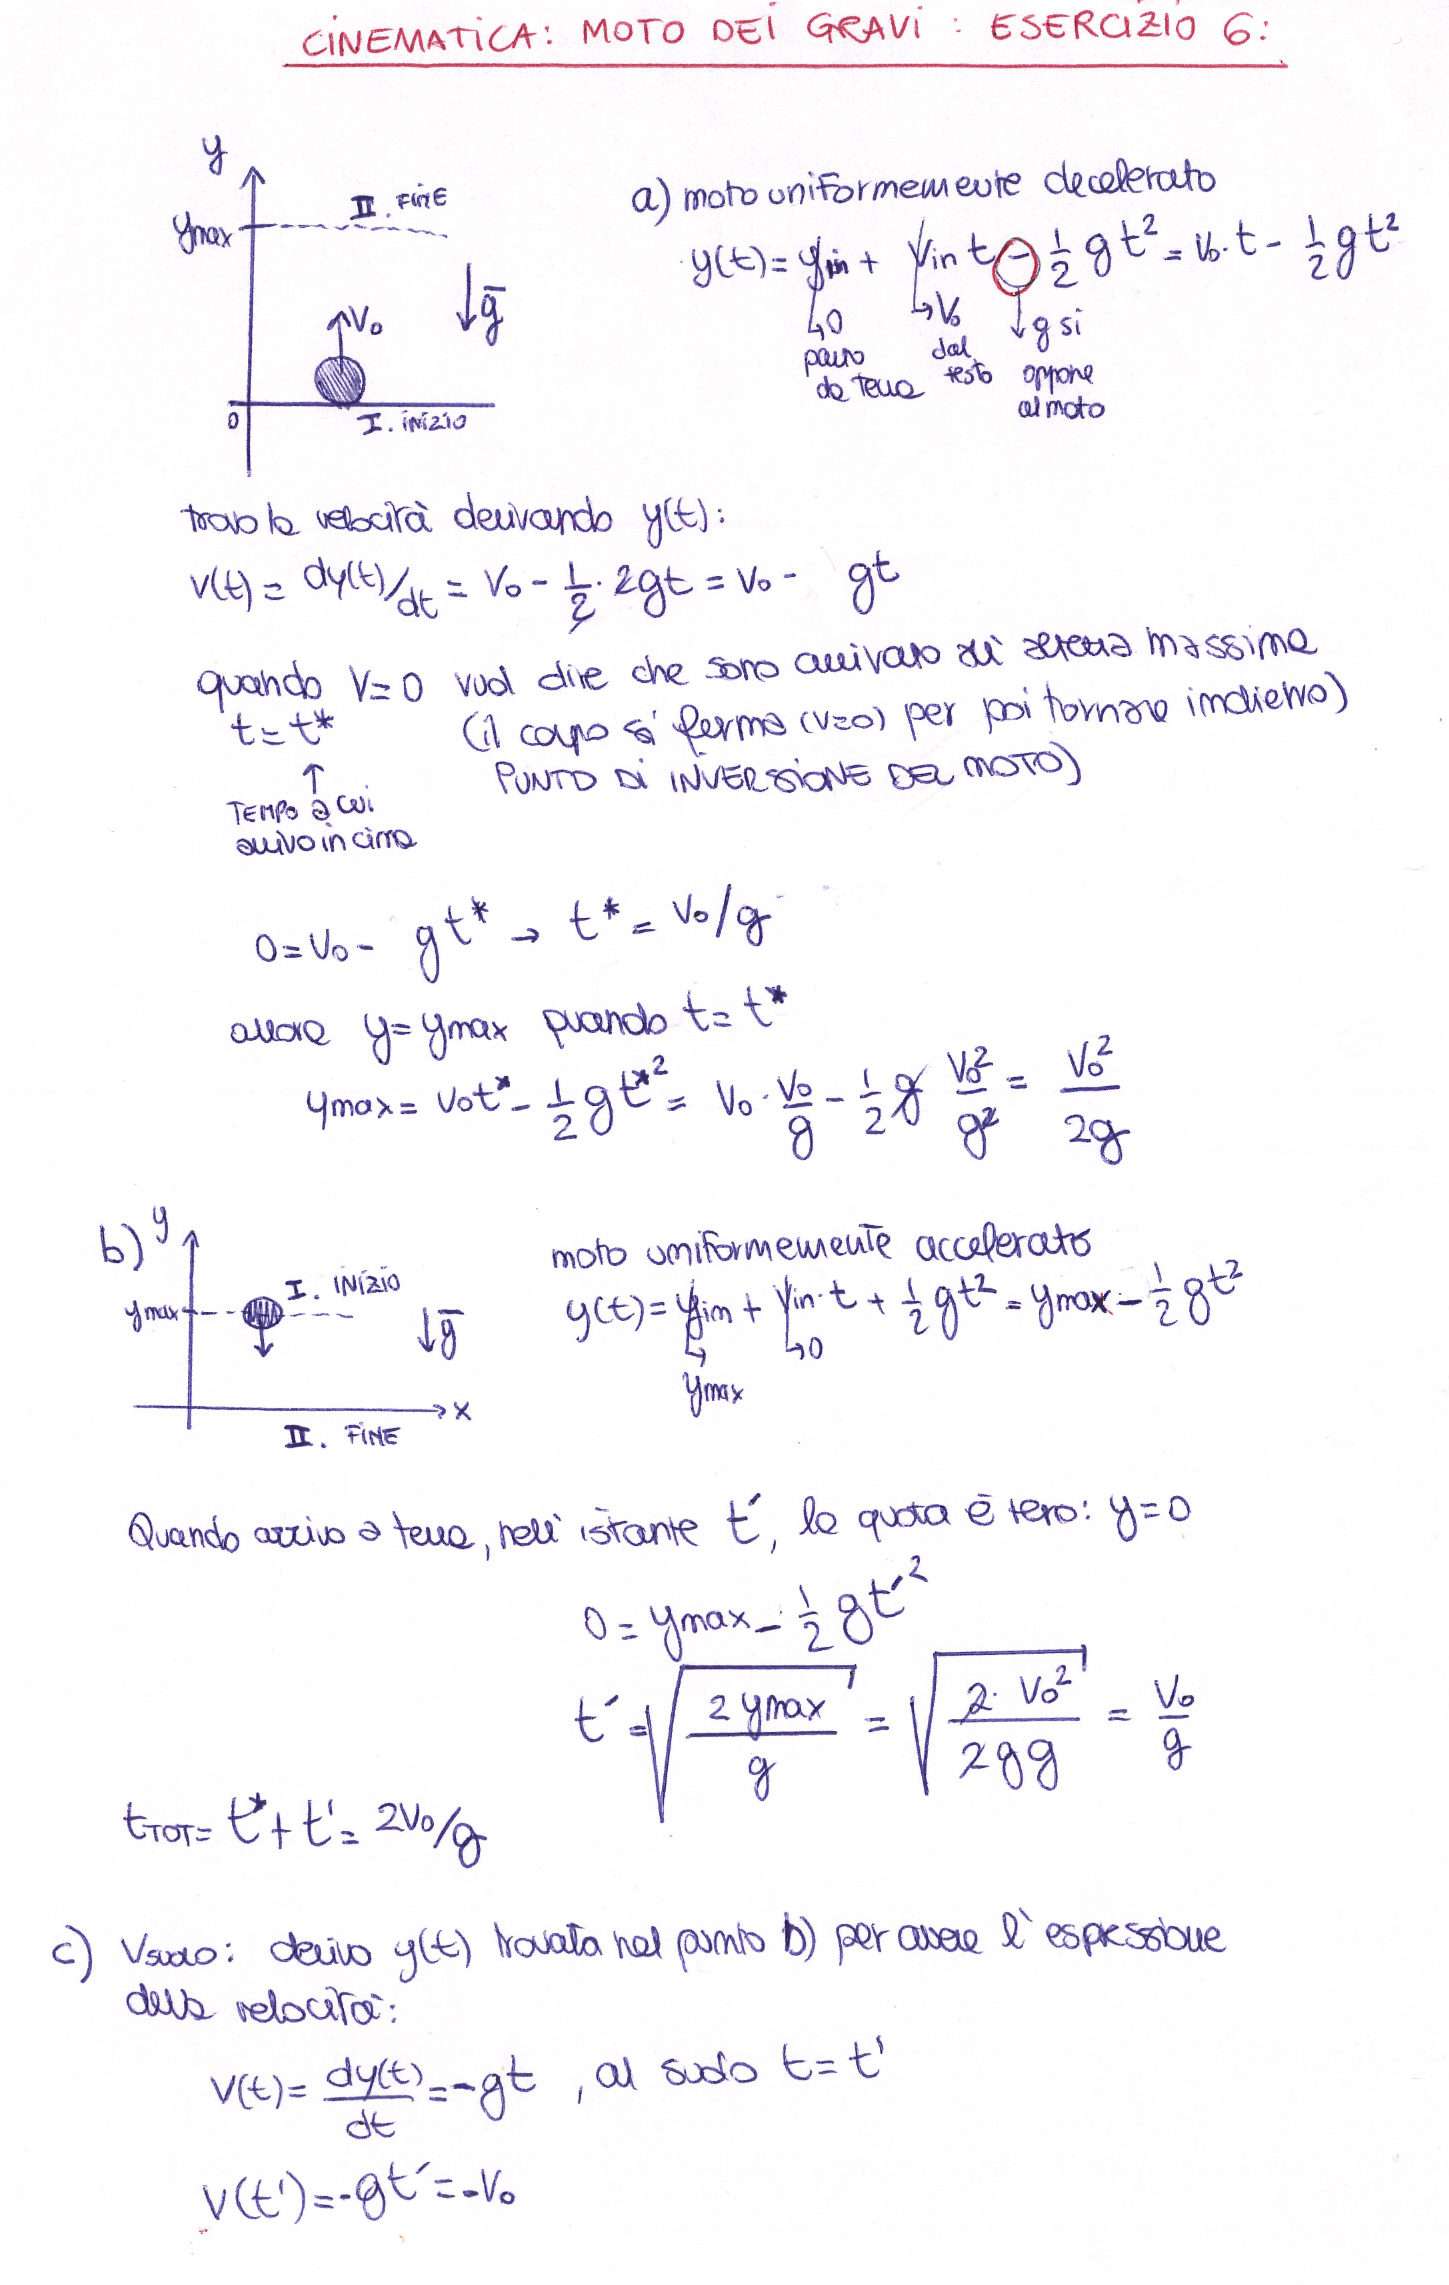 CINEMATICA: MOTO DEI GRAVI : ESERCIZIO 6:
y
ymax
II. FINE
V₀
g̅
0
I. INIZIO
a) moto uniformemente decelerato
y(t) = yin + Vin t - 1/2 g t² = V₀·t - 1/2 g t²
↳ 0
parto
da terra
↳ V₀
dal
testo
↓ g si
oppone
al moto
trovo la velocità derivando y(t):
V(t) = dy(t)/dt = V₀ - 1/2 · 2gt = V₀ - gt
quando V=0 vuol dire che sono arrivato all' altezza massima
t = t* (il corpo si ferma (V=0) per poi tornare indietro)
↑ PUNTO DI INVERSIONE DEL MOTO)
TEMPO a cui
arrivo in cima
0 = V₀ - gt* → t* = V₀/g
allora y = ymax quando t = t*
ymax = V₀t* - 1/2 g t*² = V₀ · V₀/g - 1/2 g V₀²/g² = V₀²/2g
b)
y
ymax
I. INIZIO
g̅
x
II. FINE
moto uniformemente accelerato
y(t) = yin + Vin·t + 1/2 gt² = ymax - 1/2 gt²
↳ ymax
↳ 0
Quando arrivo a terra, nell' istante t', la quota è zero: y=0
0 = ymax - 1/2 gt'²
t' = √(2 ymax/g) = √(2·V₀²/2gg) = V₀/g
tTOT = t* + t' = 2V₀/g
c) Vsuolo: derivo y(t) trovata nel punto b) per avere l'espressione
della velocità:
V(t) = dy(t)/dt = -gt , al suolo t = t'
V(t') = -gt' = -V₀